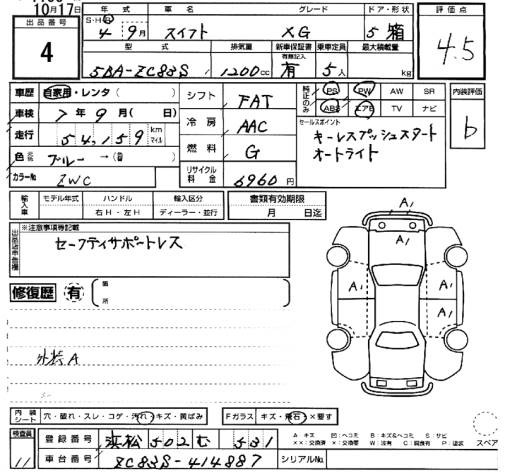 10月17日
出品番号
4
年式 車名 グレード ドア・形状 評価点
S・H・R
4年9月 スイフト XG 5 箱
4.5
型式 排気量 新車保証書 乗車定員 最大積載量
有無記入
5BA-ZC83S 1200cc 有 5人 kg
車歴 自家用・レンタ( )
シフト FAT
純正のみ PS PW AW SR
ABS エアB TV ナビ
内装評価 b
車検 7年9月(日)
冷房 AAC
セールスポイント
キーレスプッシュスタート
オートライト
走行 54,159 km マイル
燃料 G
色 ブルー→( )
リサイクル料金 6960円
カラーNo ZWC
輸入車 モデル年式 ハンドル 輸入区分 書類有効期限
右H・左H ディーラー・並行 月 日迄
※注意事項等記載
セーフティサポートレス
修復歴 有
箇所
A A A A A
外装A
内装シート 穴・破れ・スレ・コゲ・汚れ・キズ・黄ばみ Fガラス キズ・飛石・×要す
検査員 11
登録番号 浜松 502 む 531
車台番号 ZC83S-414887 シリアルNo.
スペア